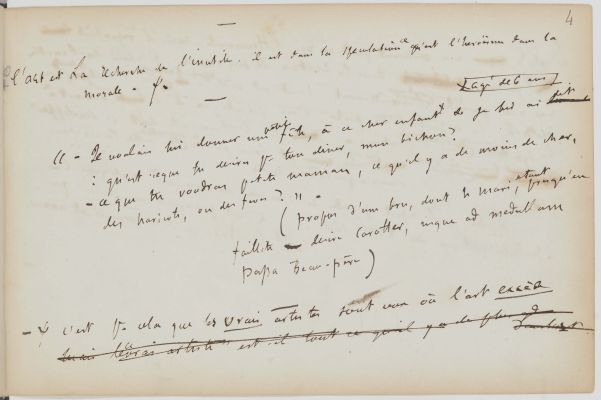 4
l'art est La recherche de l'inutile. il est dans la spéculation ce qu'est l'héroïsme dans la
morale. f.
agé de 6 ans
« – Je voulais lui donner une petite fête, à ce cher enfant et je lui ai dit
: qu'est-ce que tu désires p. ton dîner, mon bichon ?
– ce que tu voudras petite maman, ce qu'il y a de moins cher,
des haricots, ou des fèves ? » –
( propos d'une bru, dont le mari, étant presqu'en
faillite – désire carotter, usque ad medullam
papa Beau-père )
– c'est p. cela que les vrais artistes sont ceux où l'art excède
mais les vrais artistes est-il tout ce qu'il y a de plus